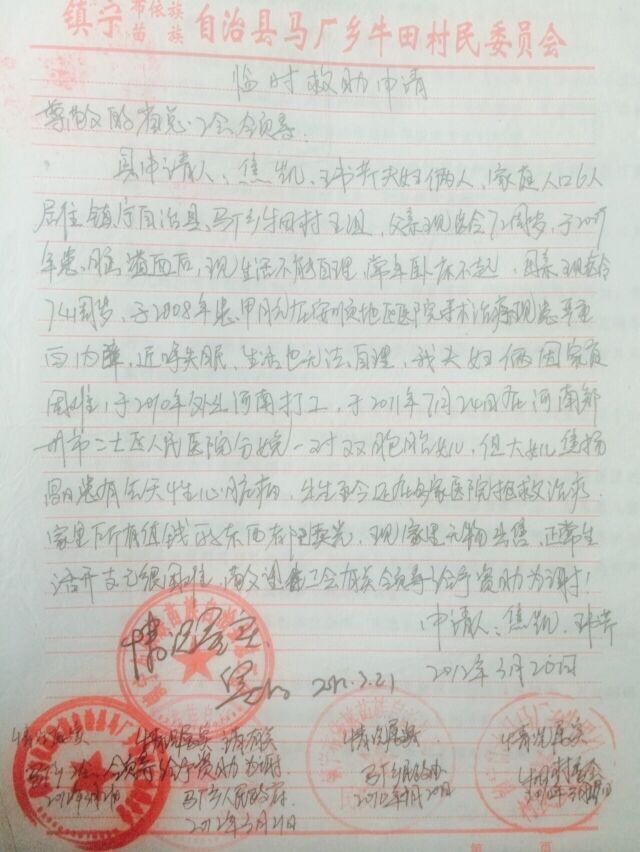 镇宁布依族苗族自治县马厂乡牛田村民委员会
临时救助申请
尊敬的省总工会领导:
具申请人:焦凯、玮芹夫妇俩人,家庭人口6人
居住镇宁自治县马厂乡牛田村五组,父亲现年72周岁,于2007
年患脑溢血后,现生活不能自理,常年卧床不起,母亲现年
74周岁,于2008年患甲亢在安顺地区医院手术治疗现患严重
白内障,近呼失眠,生活也无法自理,我夫妇俩因家庭
困难,于2010年外出河南打工,于2011年7月24日在河南郑
州市二七区人民医院分娩一对双胞胎女儿,但大女儿焦扬
患有先天性心脏病,出生至今还在多家医院抢救治疗.
家里所有值钱的东西都已卖光,现家里无物出售,正常生
活开支已很困难,工会有关领导给予资助为谢!
申请人:焦凯、玮芹
2012年3月20日
情况属实
2012.3.21
情况属实
马厂 领导给予资助为谢
2012年3月21日
情况属实 请有关
领导给予资助为谢
马厂乡人民政府
2012年3月21日
情况属实
马厂乡民政办
20日
情况属实
牛田村委会
第 页